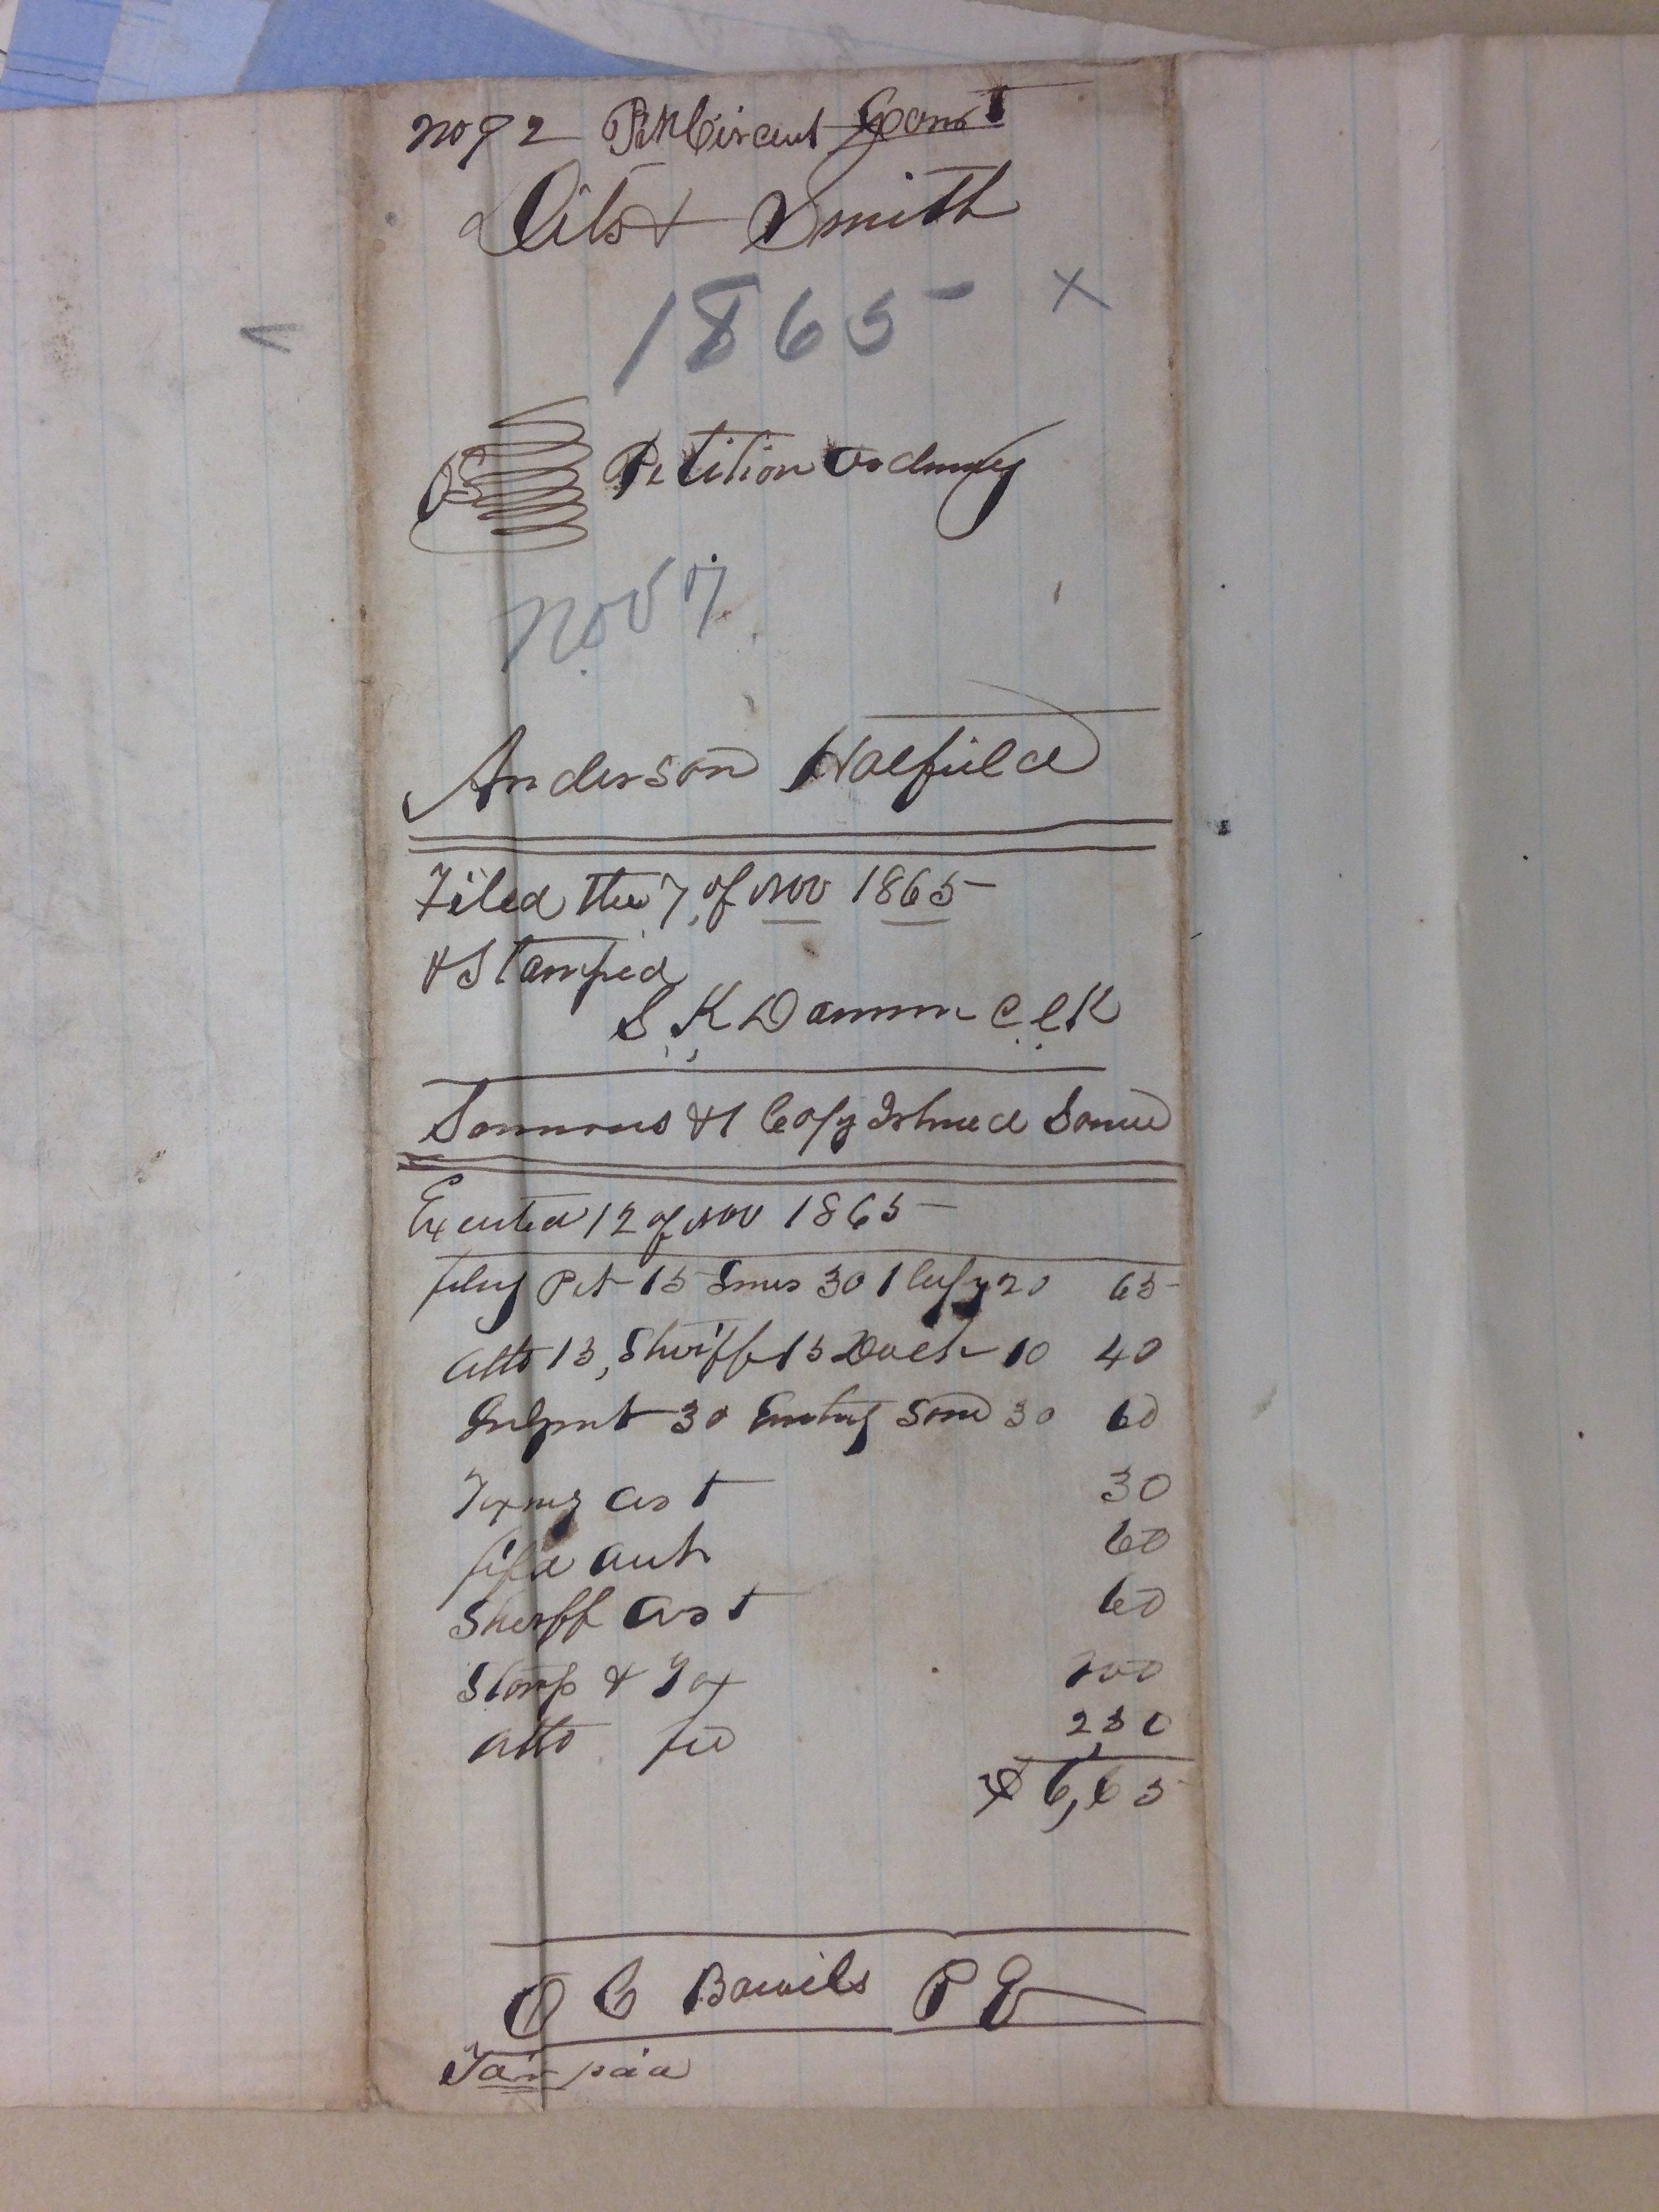 No 92 Pik Circut Court
Dils & Smith
1865
X
vs Petition Ordinary
Nov 7
Anderson Hatfield
Filed the 7 of Nov 1865
& Stamped
S K Damrn Clk
Summons & 1 Copy Ishued Same
Executed 12 of Nov 1865
filing Pet 15 Sums 30 1 Copy 20 65
Atto 15, Sheriff 15 Dock 10 40
Judgmt 30 Entrig Same 30 60
Taxing Cost 30
fifa 60
Sheriff Cost 60
Stamp & Tax
Atto fee 2,50
$ 6,65
O C Bowels P Q
Tax paid